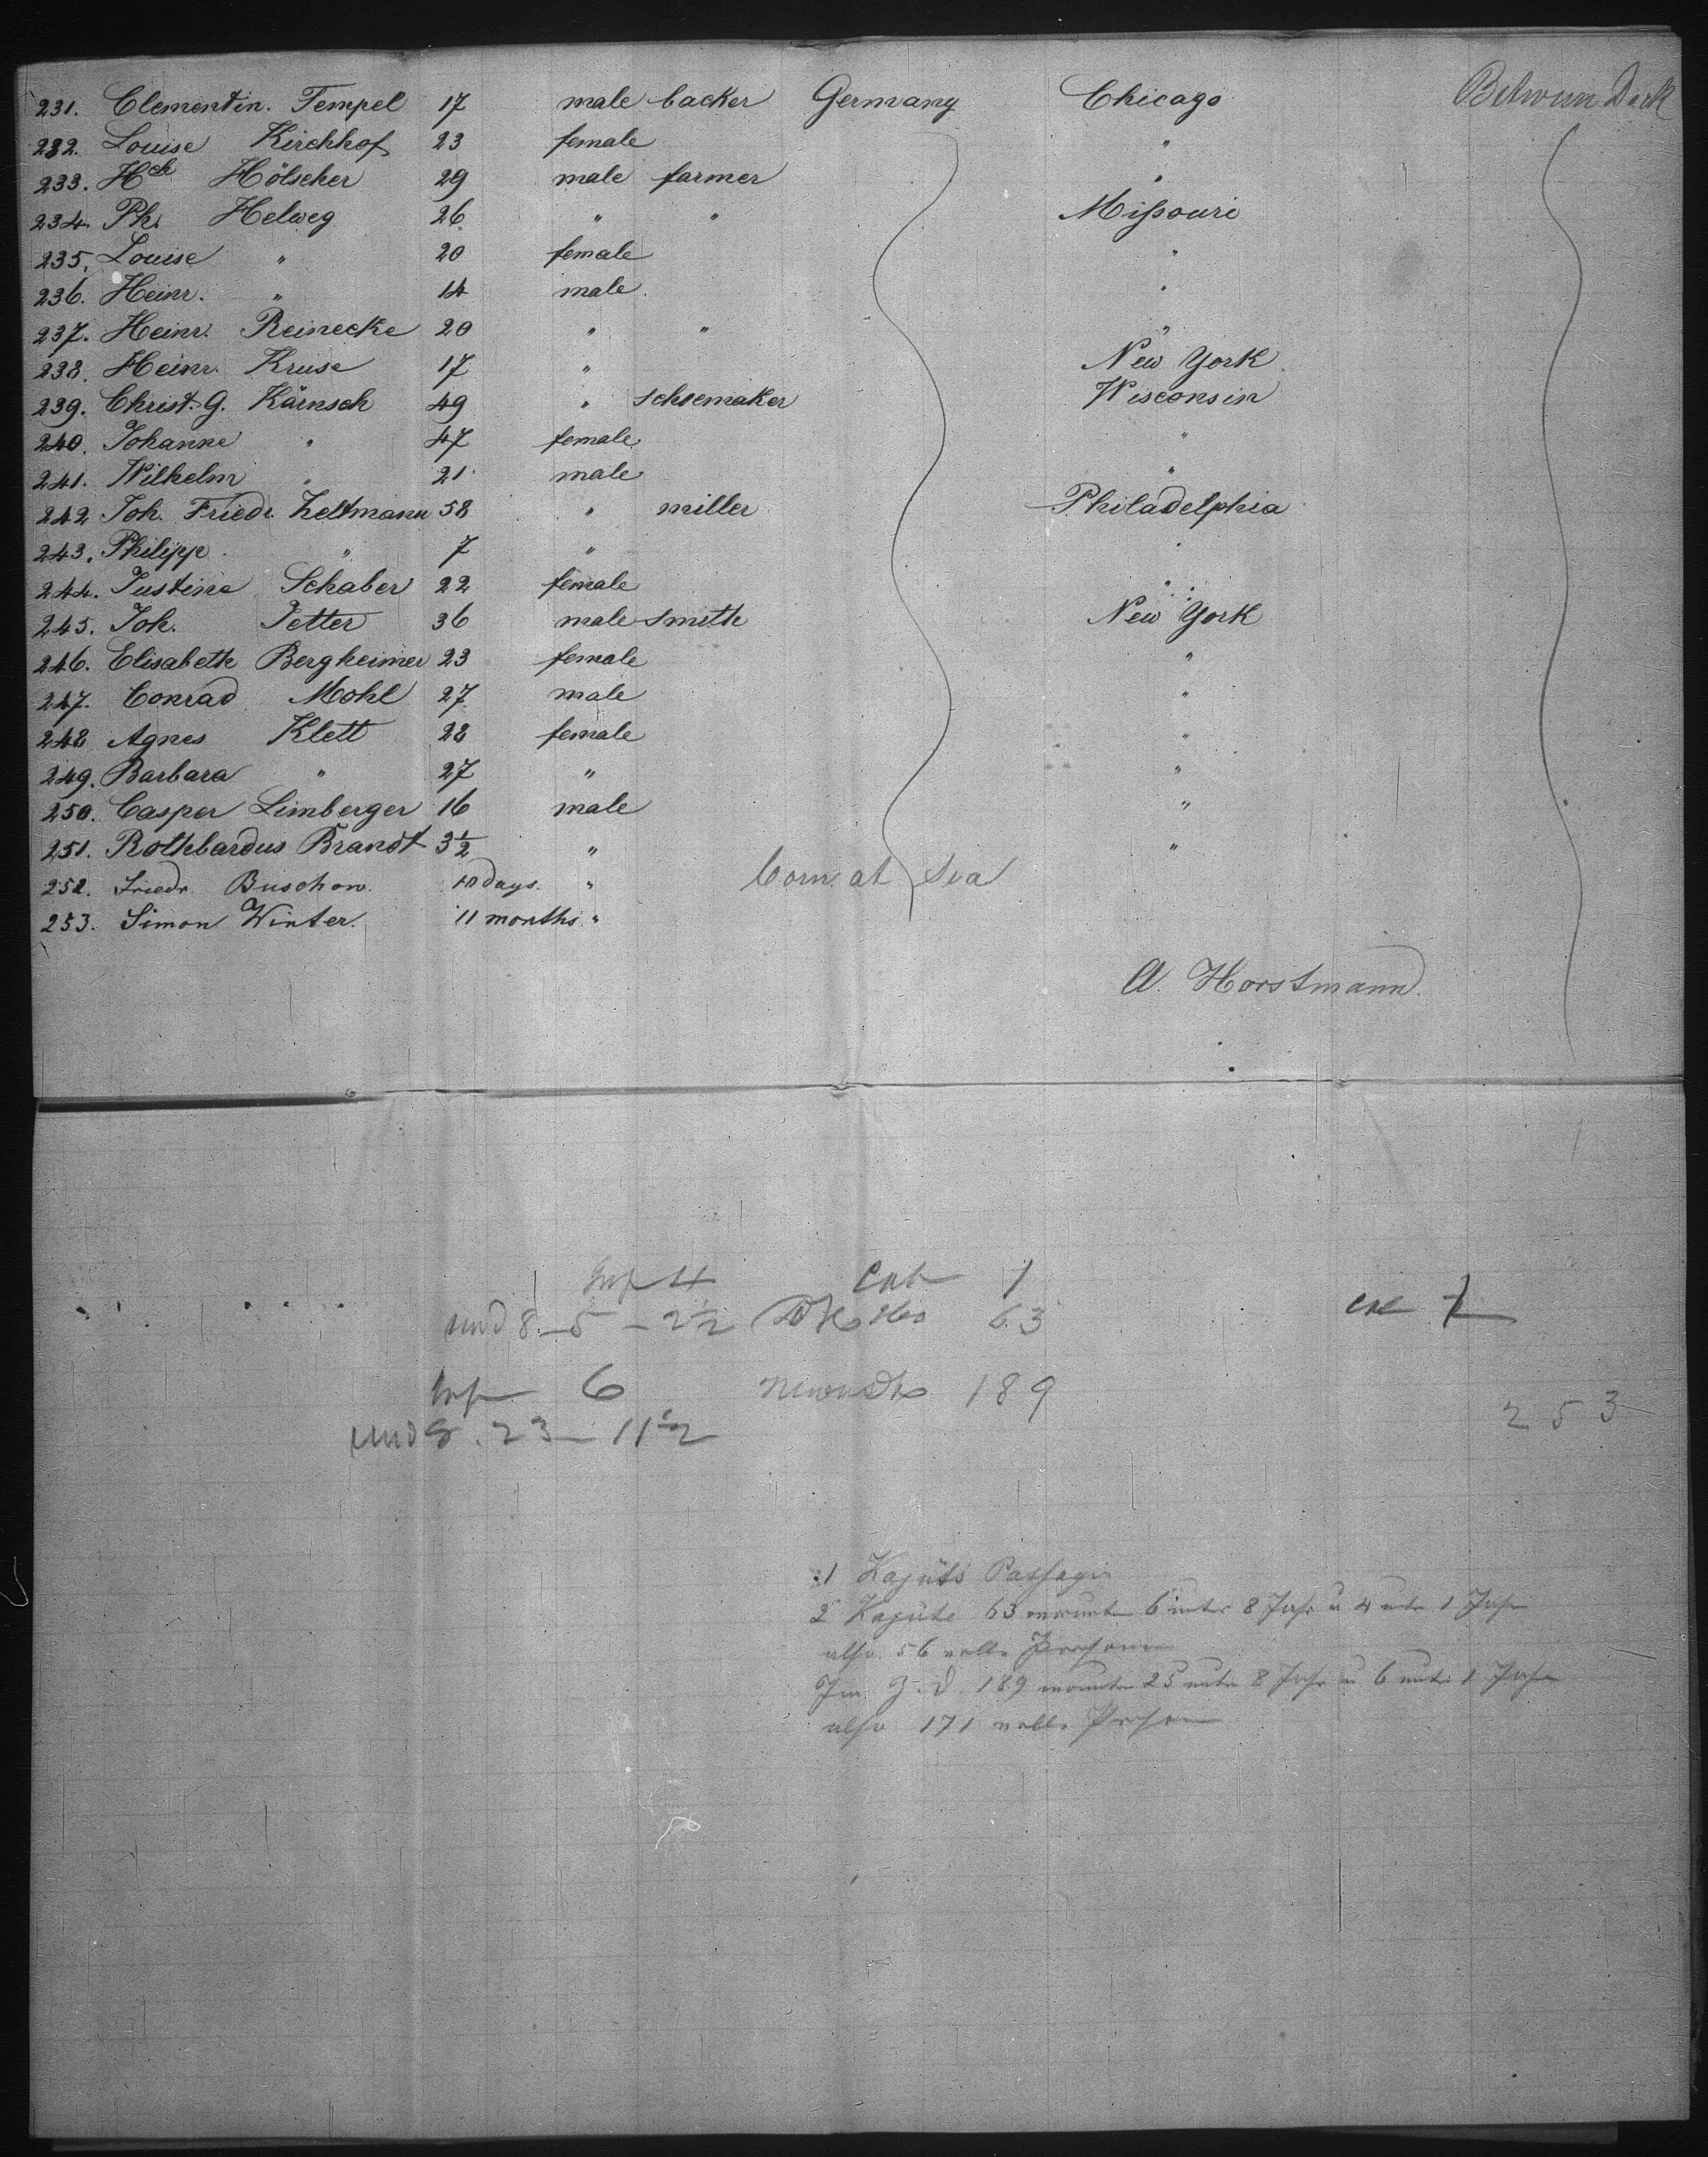 231. Clementin. Tempel 17 male backer Germany Chicago Between Deck
232. Louise Kirchhof 23 female "
233. Hch Hölscher 29 male farmer "
234. Ph. Helweg 26 " " Missouri
235. Louise " 20 female "
236. Heinr. " 14 male "
237. Heinr. Reinecke 20 " " "
238. Heinr. Kruse 17 " New York
239. Christ. G. Kärnsch 49 " schoemaker Wisconsin
240. Johanne " 47 female "
241. Wilhelm " 21 male "
242 Joh. Friedr. Zeltmann 58 " miller Philadelphia
243. Philipp " 7 " "
244. Justine Schaber 22 female "
245. Joh. Jetter 36 male smith New York
246. Elisabeth Bergheimer 23 female "
247. Conrad Mohl 27 male "
248 Agnes Klett 28 female "
249. Barbara " 27 " "
250. Casper Limberger 16 male "
251. Rothbardus Brandt 3½ " "
252. Friedr. Buschow. 10 days. " born at Sea
253. Simon Winter. 11 months. "
A. Horstmann.
Inf 4 Cab 1
und 8 – 5 – 2½ 63
Inf 6 189
und 8. 23 – 11½ 253
1 Kajüts Passagir
2 Kajüte 63 worunter 6 unter 8 Jahr u 4 unter 1 Jahr
also 56 volle Personen
Im Z. D 189 worunter 25 unter 8 Jahr u 6 unter 1 Jahr
also 171 volle Person